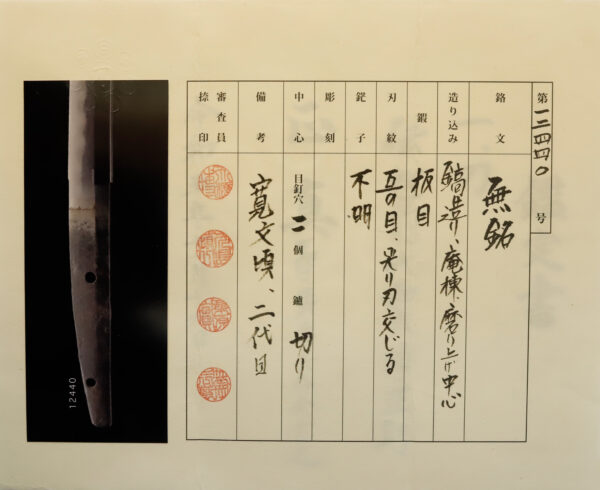 第一二四四〇号
銘文 無銘
造り込み 鎬造り、庵棟、磨り上げ中心
鍛 板目
刃紋 互の目、足り刃交じる
鋩子 不明
彫刻
中心 目釘穴 二個 鑢 切り
備考 寛文頃、二代目
審査員
捺印
12440